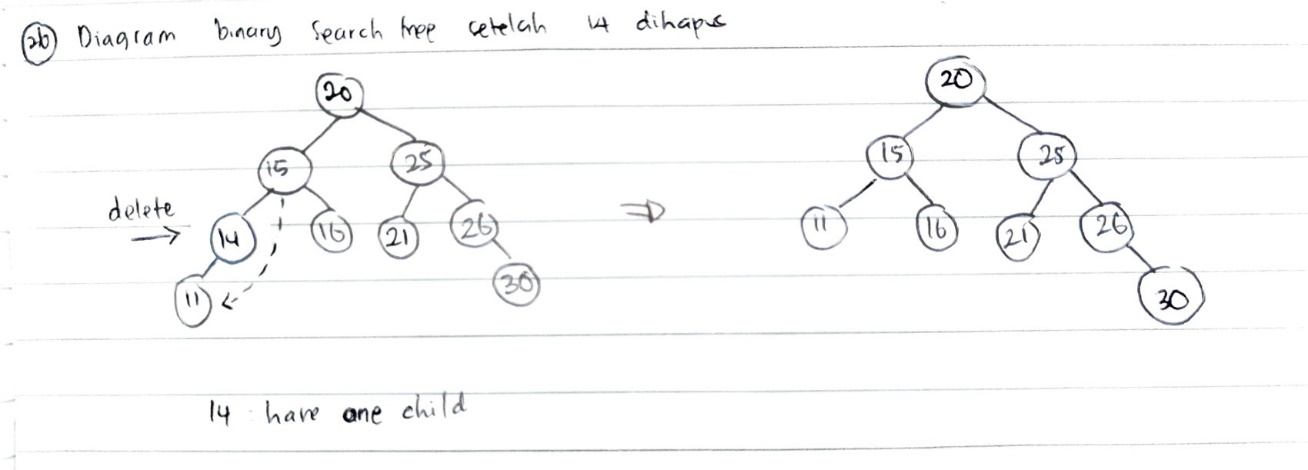 2b Diagram binary search tree setelah 14 dihapus
20 20
15 25 15 25
delete
14 16 21 26 11 16 21 26
11 30 30
14 : have one child